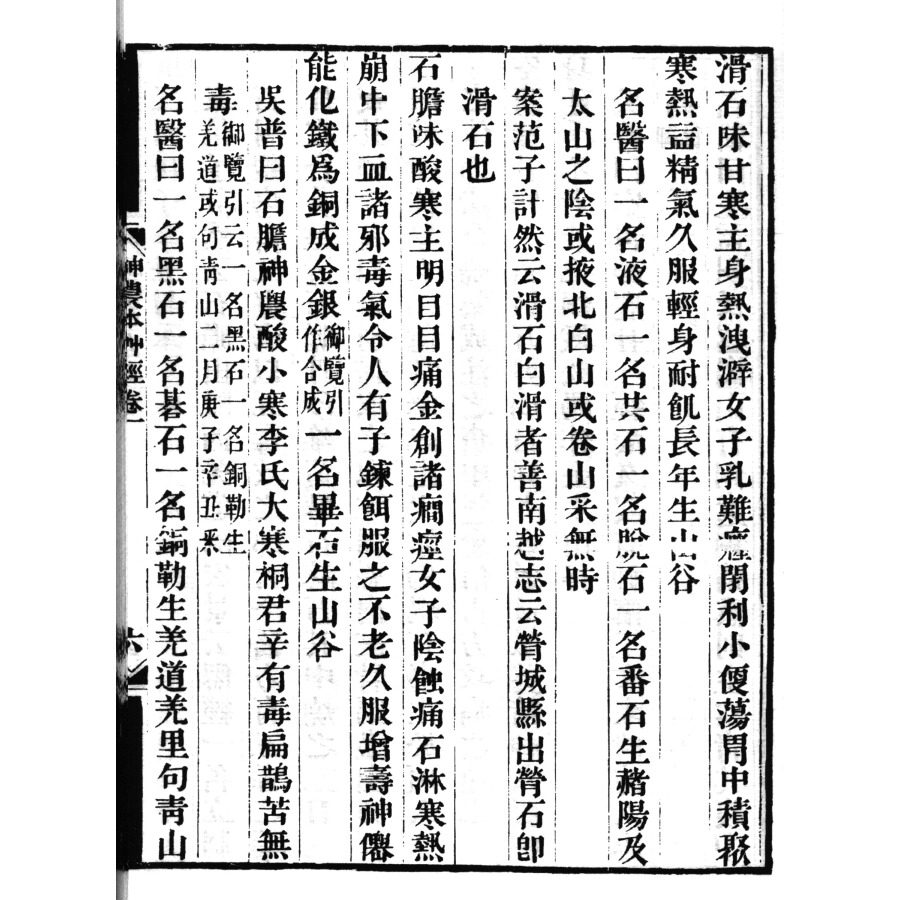 滑石味甘寒主身熱洩澼女子乳難癃閉利小便蕩胃中積聚
寒熱益精氣久服輕身耐飢長年生山谷
名醫曰一名液石一名共石一名脫石一名番石生赭陽及
太山之陰或掖北白山或卷山采無時
案范子計然云滑石白滑者善南越志云膋城縣出膋石卽
滑石也
石膽味酸寒主明目目痛金創諸癇痙女子陰蝕痛石淋寒熱
崩中下血諸邪毒氣令人有子鍊餌服之不老久服增壽神僊
能化鐵爲銅成金銀御覽引作合成一名畢石生山谷
吳普曰石膽神農酸小寒李氏大寒桐君辛有毒扁鵲苦無
毒御覽引云一名黑石一名銅勒生羌道或句靑山二月庚子辛丑采
名醫曰一名黑石一名碁石一名銅勒生羌道羌里句靑山
神農本艸經卷一
六